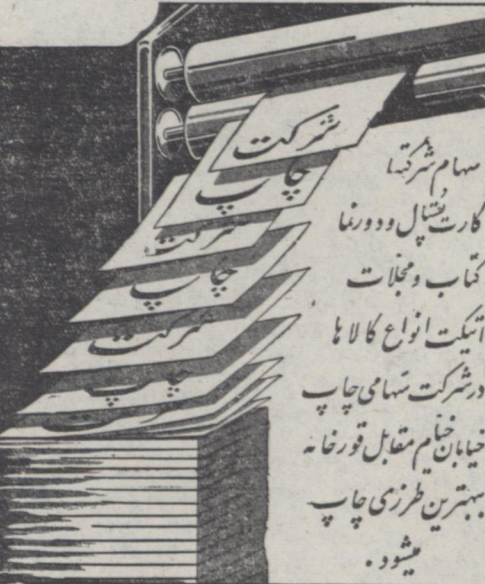 شرکت
چاپ
شرکت
چاپ
شرکت
چاپ
سهام شرکتها
کارت پستال و دورنما
کتاب و مجلات
اتیکت انواع کالا ها
در شرکت سهامی چاپ
خیابان خیام مقابل قورخانه
بهترین طرزی چاپ
میشود.